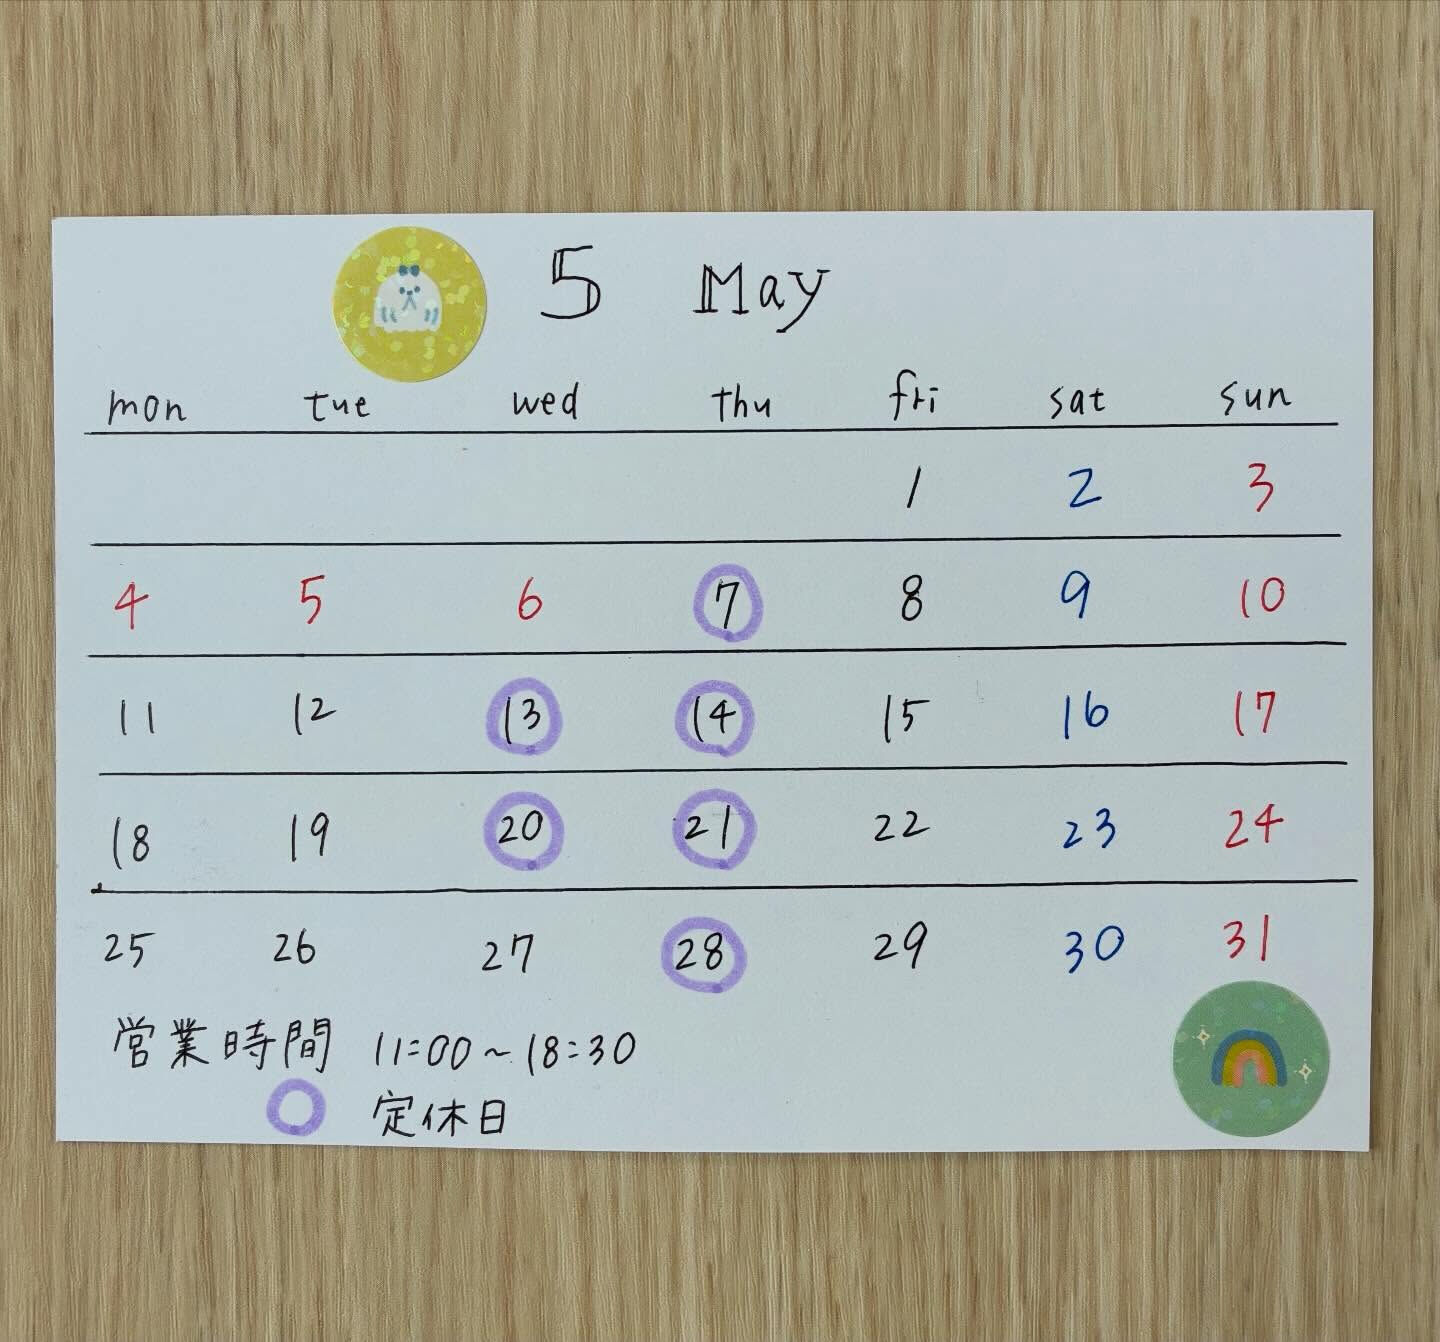 5 May
mon tue wed thu fri sat sun
1 2 3
4 5 6 7 8 9 10
11 12 13 14 15 16 17
18 19 20 21 22 23 24
25 26 27 28 29 30 31
営業時間 11:00~18:30
定休日